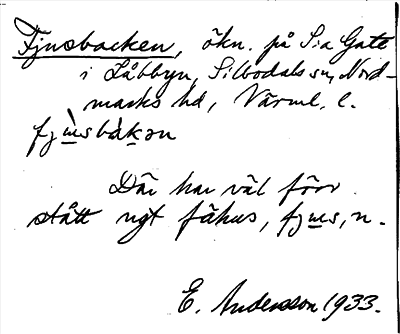 Fjusbacken, ökn. på S:a Gate
i Låbbyn, Silbodals sn, Nord-
marks hd, Värml. l.
fjùsbàkən
Där har väl förr
stått ngt fähus, fjus, n.
E. Andersson 1933.